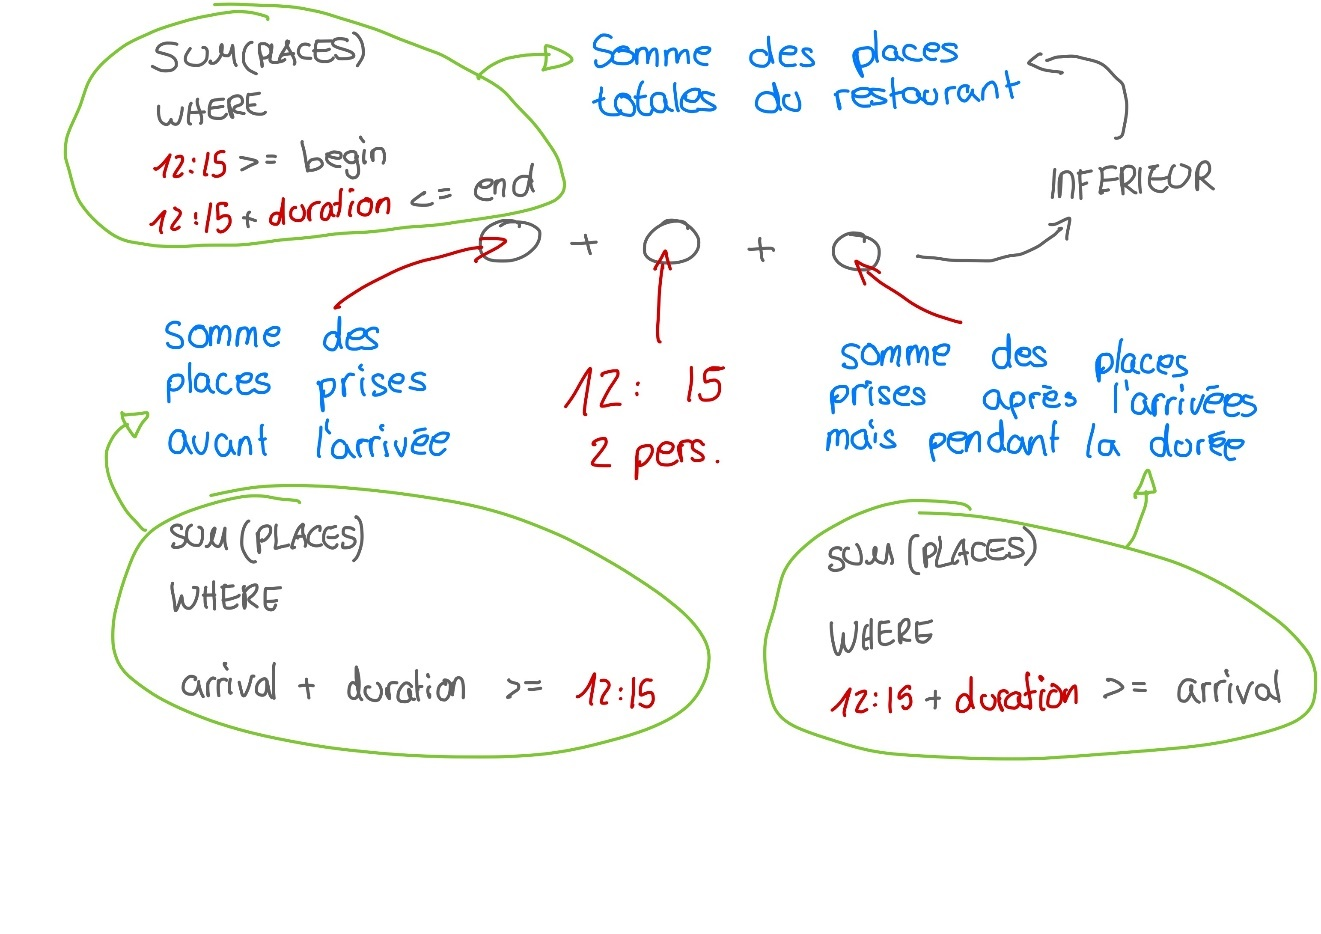 SUM(PLACES)
WHERE
12:15 >= begin
12:15 + duration <= end
Somme des places
totales du restaurant
INFERIEUR
+ +
somme des
places prises
avant l'arrivée
12: 15
2 pers.
somme des places
prises après l'arrivées
mais pendant la durée
SUM (PLACES)
WHERE
arrival + duration >= 12:15
SUM (PLACES)
WHERE
12:15 + duration >= arrival